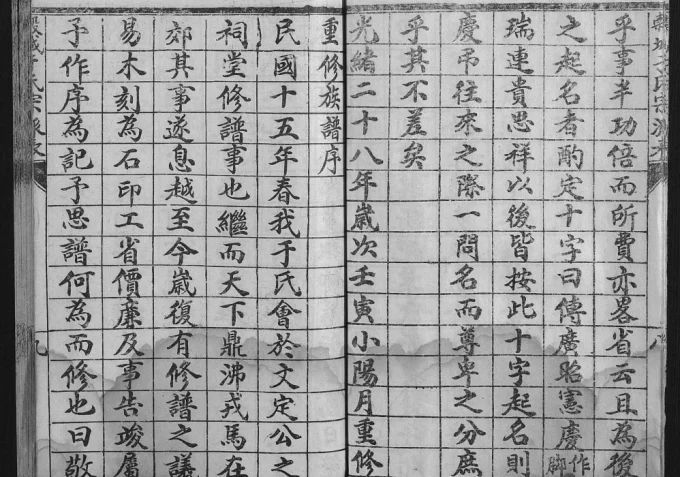 八
乎事半功倍而所費亦畧省云且為後
之起名者酌定十字曰傳廣昭憲慶作脚
瑞連貴思祥以後皆按此十字起名則
慶吊往來之際一問名而尊卑之分庶
乎其不差矣
光緒二十八年歲次壬寅小陽月重修
重修族譜序
民國十五年春我于氏會於文定公之
祠堂修譜事也繼而天下鼎沸戎馬在
郊其事遂息越至今歲復有修譜之議
易木刻為石印工省價廉及事告竣屬
予作序為記予思譜何為而修也曰敬
九